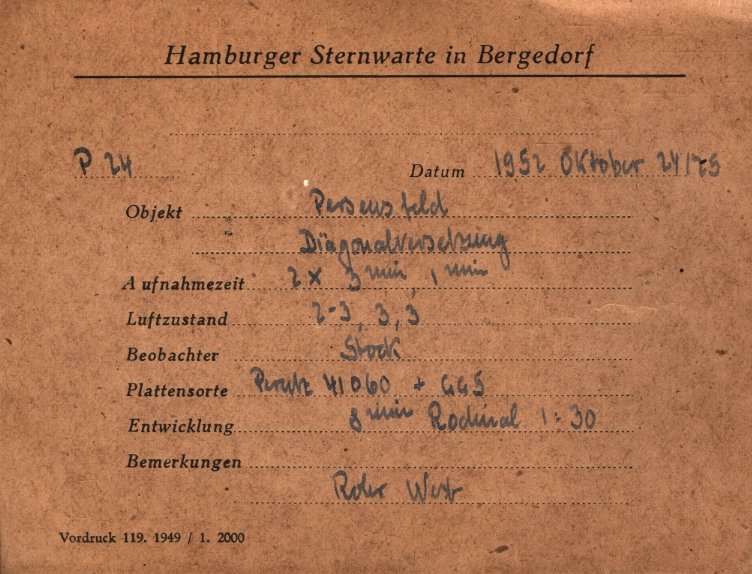 Hamburger Sternwarte in Bergedorf
P 24 Datum 1952 Oktober 24/25
Objekt Perseusfeld
Diagonalversetzung
Aufnahmezeit 2 x 3 min, 1 min
Luftzustand 2-3, 3, 3
Beobachter Stock
Plattensorte Perutz + GG5
Entwicklung 8 min Rodinal 1:30
Bemerkungen
Roter
Vordruck 119. 1949 / 1. 2000